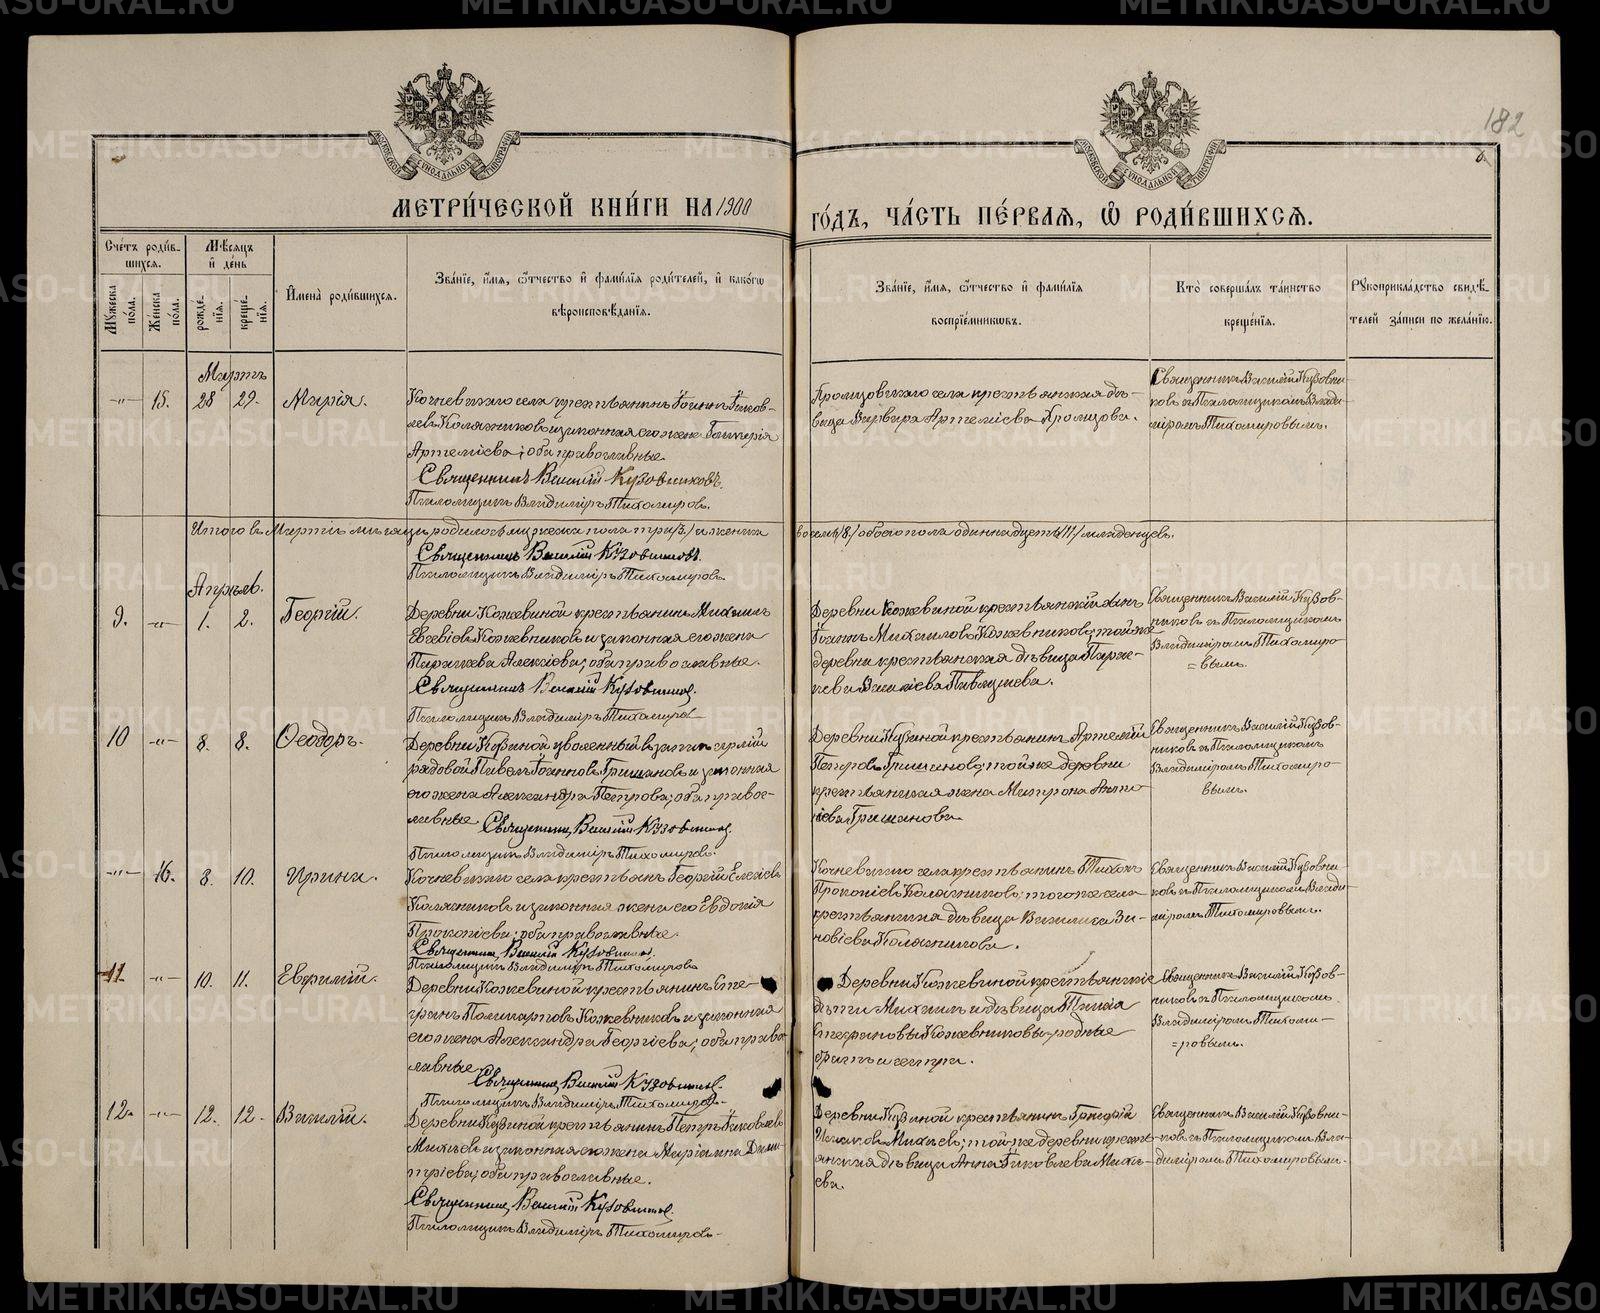 METRIKI.GASO-URAL.RU
182
МОСКОВСКОЙ СѴНОДАЛЬНОЙ ТИПОГРАФІИ
МОСКОВСКОЙ СѴНОДАЛЬНОЙ ТИПОГРАФІИ
МЕТРИ́ЧЕСКОЙ КНИ́ГИ НА 1900
ГО́ДЪ, ЧА́СТЬ ПЕ́РВАѦ, Ѡ҆ РОДИ́ВШИХСѦ.
Сче́тъ роди́в-
шихсѧ.
Мꙋ́жеска по́ла.
Же́нска по́ла.
Мѣ́сѧцъ
и҆ де́нь
рожде́нїѧ.
креще́нїѧ.
И҆мена̀ роди́вшихсѧ.
Зва́нїе, и҆́мѧ, ѻ҆́тчество и҆ фамилїѧ роди́телей, и҆ како́гѡ
вѣроисповѣ́данїѧ.
Зва́нїе, и҆́мѧ, ѻ҆́тчество и҆ фамилїѧ
воспрїе́мникѡвъ.
Кто̀ соверша́лъ та́инство
креще́нїѧ.
Рꙋкоприкла́дство свидѣ́-
телей за́писи по жела́нїю.
Мартъ
15. 28 29. Марія.
Кочневскаго села крестьянинъ Іоаннъ Іаков-
левъ Колясниковъ и законная его жена Гликерія
Артеміева; оба православные.
Священникъ Василій Кузовниковъ.
Псаломщикъ Владиміръ Тихомировъ.
села крестьянская дѣ-
вица Варвара Артеміева
Священникъ Василій Кузовни-
ковъ съ Псаломщикомъ Влади-
міромъ Тихомировымъ.
Итого въ Мартѣ мѣсяцѣ родилось мужеска пола три /3/ и женска
восемь /8/ обоего пола одиннадцать /11/ младенцевъ.
Священникъ Василій Кузовниковъ.
Псаломщикъ Владиміръ Тихомировъ.
Апрѣль.
9. 1. 2. Георгій.
Деревни Кожевиной крестьянинъ Михаилъ
Кожевниковъ и законная его жена
Параскева Алексіева; оба православные.
Священникъ Василій Кузовниковъ.
Псаломщикъ Владиміръ Тихомировъ
Деревни Кожевиной крестьянскій сынъ
Іоаннъ Михаиловъ Кожевниковъ; той же
деревни крестьянская дѣвица Параске-
Священникъ Василій Кузов-
никовъ съ Псаломщикомъ
Владиміромъ Тихомиро-
=вымъ.
10 8. 8. Ѳеодоръ.
Деревни Кузиной уволенный въ запасъ арміи
рядовой Павелъ Іоанновъ Гришановъ и законная
его жена Александра Петрова; оба право-
славные
Священникъ Василій Кузовниковъ.
Псаломщикъ Владиміръ Тихомировъ.
Деревни Кузиной крестьянинъ Артемій
Петровъ Гришановъ; той же деревни
крестьянская жена Матрона
Гришанова.
Священникъ Василій Кузов-
никовъ съ Псаломщикомъ
Владиміромъ Тихомиро-
вымъ.
16. 8. 10. Ирина.
Кочневскаго села крестьянинъ Георгій
Колясниковъ и законная жена его Евдокія
Прокопіева; оба православные.
Священникъ Василій Кузовниковъ.
Псаломщикъ Владиміръ Тихомировъ
Кочневскаго села крестьянинъ Тихонъ
Прокопіевъ Колясниковъ; того же села
крестьянская дѣвица Василиса Зи-
новіева Колясникова.
Священникъ Василій Кузовни-
ковъ съ Псаломщикомъ Влади-
міромъ Тихомировымъ.
11 10. 11. Евфимій.
Деревни Кожевиной крестьянинъ
Поликарповъ Кожевниковъ и законная
его жена Александра Георгіева; оба право-
славные
Священникъ Василій Кузовниковъ.
Псаломщикъ Владиміръ Тихомировъ.
Деревни Кожевиной крестьянскіе
дѣти Михаилъ и дѣвица Таисія
Кожевниковы, родные
братъ и сестра.
Священникъ Василій Кузов-
никовъ съ Псаломщикомъ
Владиміромъ Тихоми-
=ровымъ.
12. 12. 12. Василій.
Деревни Кузиной крестьянинъ Петръ Іаковлевъ
и законная его жена Маріамна Дими-
тріева; оба православные.
Священникъ Василій Кузовниковъ.
Псаломщикъ Владиміръ Тихомировъ.
Деревни Кузиной крестьянинъ
той же деревни кресть-
янская дѣвица Анна Іаковлева
Священникъ Василій Кузовни-
ковъ съ Псаломщикомъ Вла-
диміромъ Тихомировымъ.